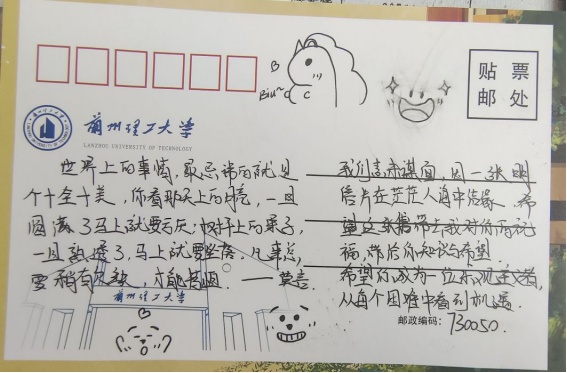 贴 票
邮 处
Biu~
兰州理工大学
LANZHOU UNIVERSITY OF TECHNOLOGY
世界上的事情,最忌讳的就是
个十全十美,你看那天上的月亮,一旦
圆满了马上就要亏厌;树上的果子,
一旦熟透了,马上就要坠落。凡事总
要稍有欠缺,才能持恒。——莫言
我们素未谋面,因一张明
信片在茫茫人海中结缘,希
望这张 带去我对你的祝
福,
希望你成为一位乐观主义者,
从每个困难中看到机遇.
邮政编码:730050.
兰州理工大学